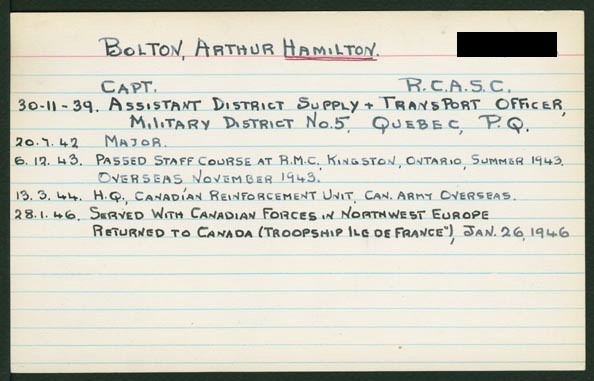 BOLTON, ARTHUR HAMILTON.
CAPT. R.C.A.S.C.
30-11-39. ASSISTANT DISTRICT SUPPLY + TRANSPORT OFFICER,
MILITARY DISTRICT NO.5, QUEBEC, P.Q.
20.7.42 MAJOR.
6.12.43. PASSED STAFF COURSE AT R.M.C. KINGSTON, ONTARIO, SUMMER 1943.
OVERSEAS NOVEMBER 1943.
13.3.44. H.Q., CANADIAN REINFORCEMENT UNIT, CAN. ARMY OVERSEAS.
28.1.46. SERVED WITH CANADIAN FORCES IN NORTHWEST EUROPE
RETURNED TO CANADA (TROOPSHIP ILE DE FRANCE"), JAN. 26, 1946